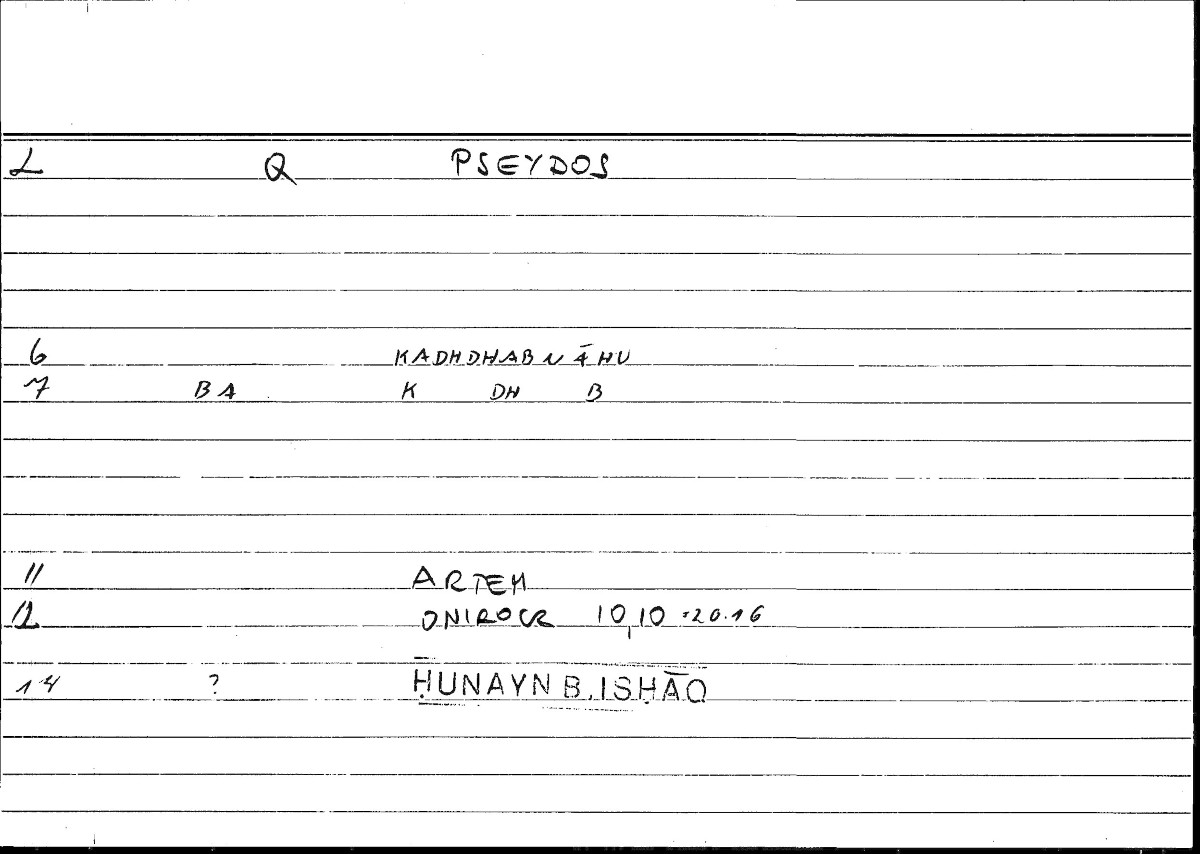 L Q PSEYDOS
6 KADHDHABNĀHU
7 BA K DH B
11 ARTEM
12 ONIROCR 10,10 = 20.16
14 ? ḤUNAYN B. ISḤĀQ